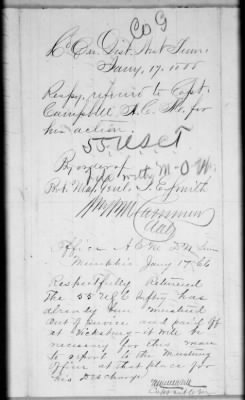 Co G
Hd Qrs Dist. West Tenn.
Jany. 17. 1866
Respy. referred to Capt.
Campbell A.C.M. for
his action.
55 USCT
By order of
file with M-O-W.
Bvt. Maj. Genl. J. E. Smith
AAG
Office A C M D W Tenn
Memphis Jany 17 66
Respectfully Returned
The 55 U.S.C Infty has
already been mustered
out of service and paid off
at Vicksburg - it will be
necessary for this man
to report to the Mustering
Officer at that place for
his Discharge